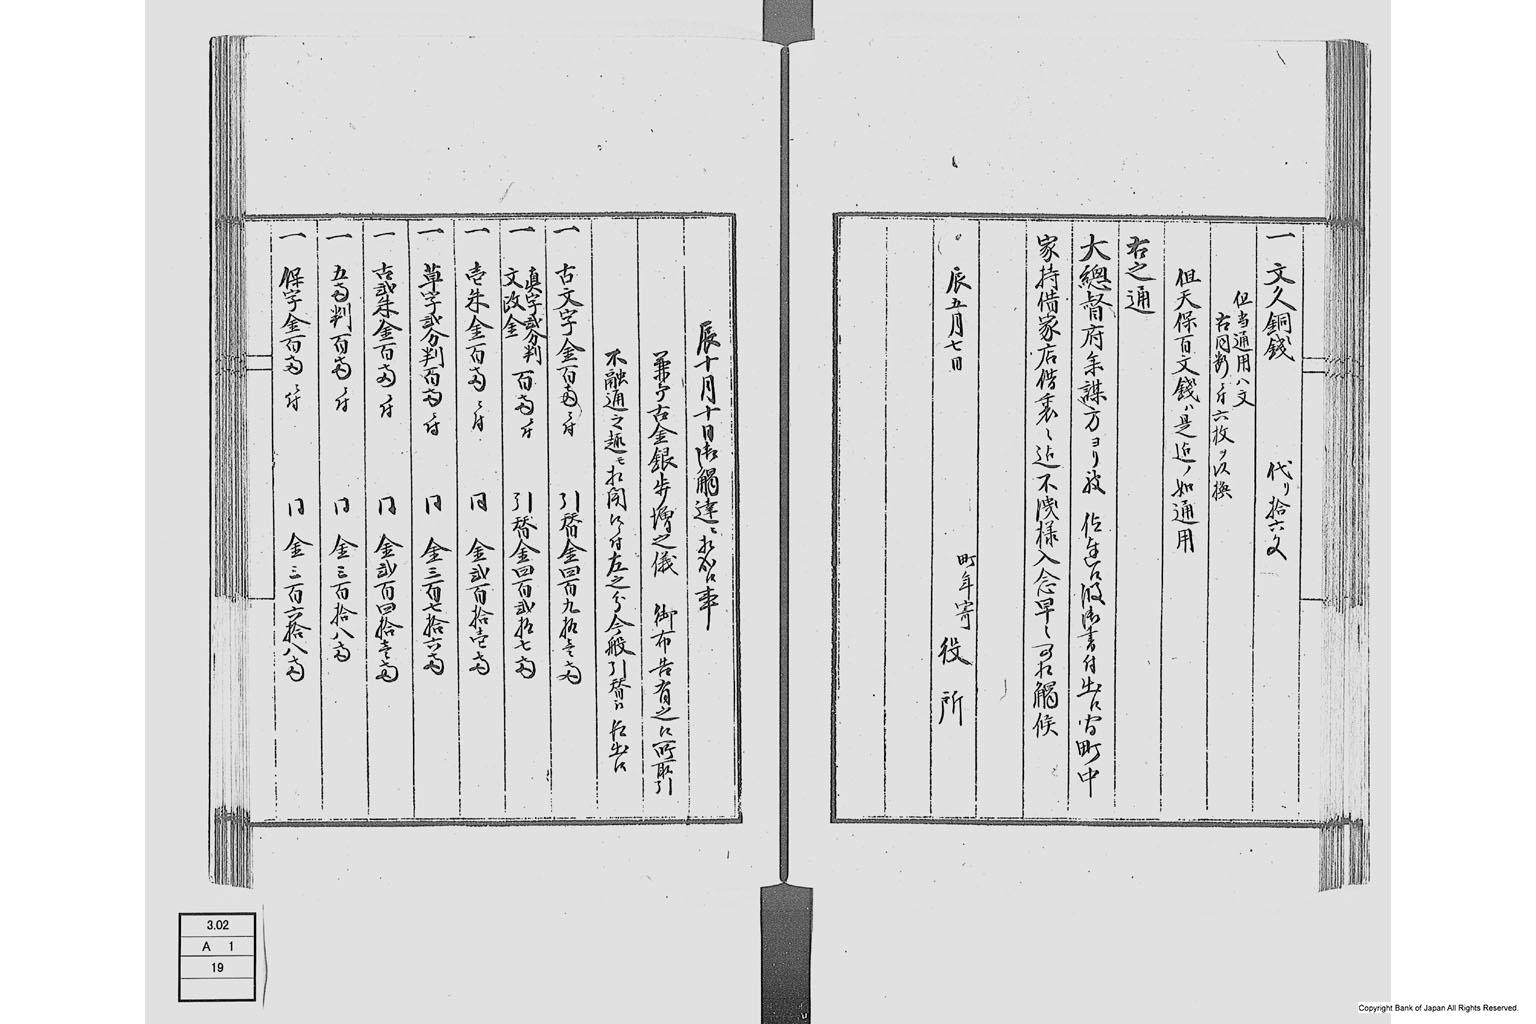 一 文久銅銭 代り拾六文
但当通用八文
右同断ニ付六枚ヲ以換
但天保百文銭ハ是迄ノ如通用
右之通
大總督府参謀方ヨリ被 仰渡候御書付出候間町中
家持借家店借裏々迄不洩様入念早々可相觸候
辰五月七日
町年寄
役所
辰十月十日御觸達ニ相成候事
兼而古金銀歩増之儀 御布告有之候所取引
不融通之趣モ相聞候付左之分今般引替被 仰出候
一 古文字金百両ニ付 引替金四百九拾壱両
一 真字弐分判 文政金 百両ニ付 引替金四百弐拾七両
一 壱朱金百両ニ付 同 金弐百拾壱両
一 草字弐分判百両ニ付 同 金三百七拾六両
一 古弐朱金百両ニ付 同 金弐百四拾壱両
一 五両判百両ニ付 同 金三百拾八両
一 保字金百両ニ付 同 金三百六拾八両
3.02
A 1
19
Copyright Bank of Japan All Rights Reserved.